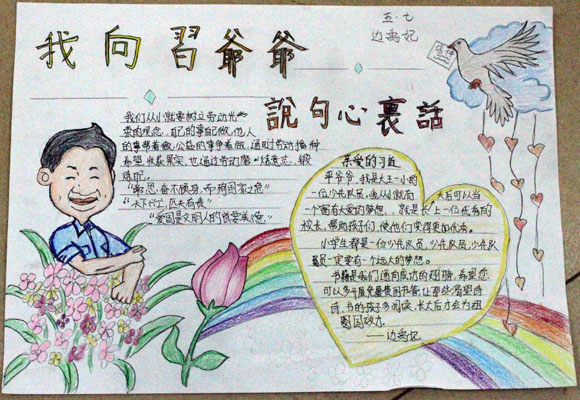 五·七
我向習爺爺
說句心裏話
我们从小就要树立劳动光
荣的观念，自己的事自己做，他人
的事帮着做，公益的事争着做，通过劳动播种
希望、收获果实，也通过劳动磨炼意志、锻
炼
"常思奋不顾身，而殉国家之急"
"天下兴亡，匹夫有责"
"爱国是文明人的首要美德"
亲爱的习近
平爷爷，我是大王小的
一位少先队员，我从小就有
一个 有大爱的梦想， 就是长大后可以当
上一位优秀的
校长，帮助孩子们，使他们变得更加优秀。
小学生都是一位少先队员，少先队员，少先队
员一定要有一个远大的梦想。
书籍是我们通向成功的翅膀，希望您
可以多开展免费图书馆，让那些渴望读
书的孩子多阅读，长大后才会为祖
国效力。